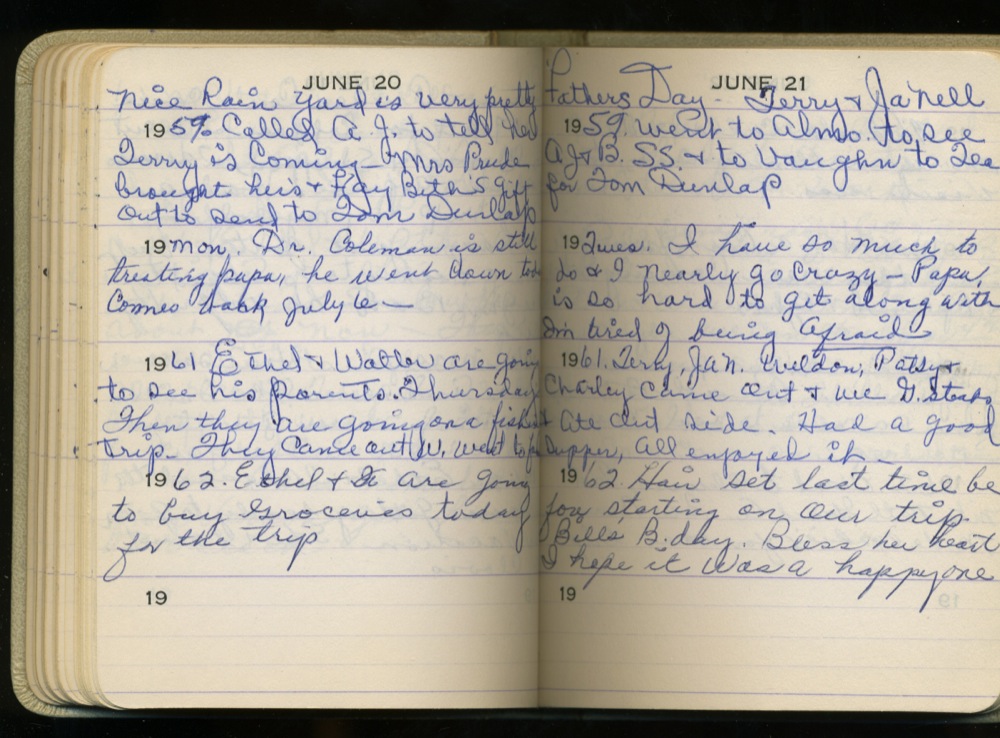 JUNE 20
Nice Rain Yard is very pretty
1959 Called A. J. to tell her
Terry is Coming - Mrs Prude
brought hers & Fay Beth's gift
out to send to Tom Dunlap
19 Mon. Dr. Coleman is still
treating papa, he went down
Comes back July 6 -
1961 Ethel & Walter are going
to see his parents. Thursday
Then they are going on a fishing
trip. They Came out W. went to
1962. Ethel & I are going
to buy Groceries today
for the trip
19
JUNE 21
Fathers Day - Terry & Ja'nell
1959. went to Almo. to see
A J & B. SS. & to Vaughn to Tea
for Tom Dunlap
19 Tues. I have so much to
do & I nearly go Crazy - Papa,
is so hard to get along with
I'm tired of being Afraid
1961. Terry, Jan, Weldon, Patsy &
Charley came out & we G. Steaks
& Ate Out side. Had a good
Supper, all enjoyed it -
1962. Hair set last time be
fore starting on our trip.
Bill's B.day. Bless her heart
I hope it was a happy one
19